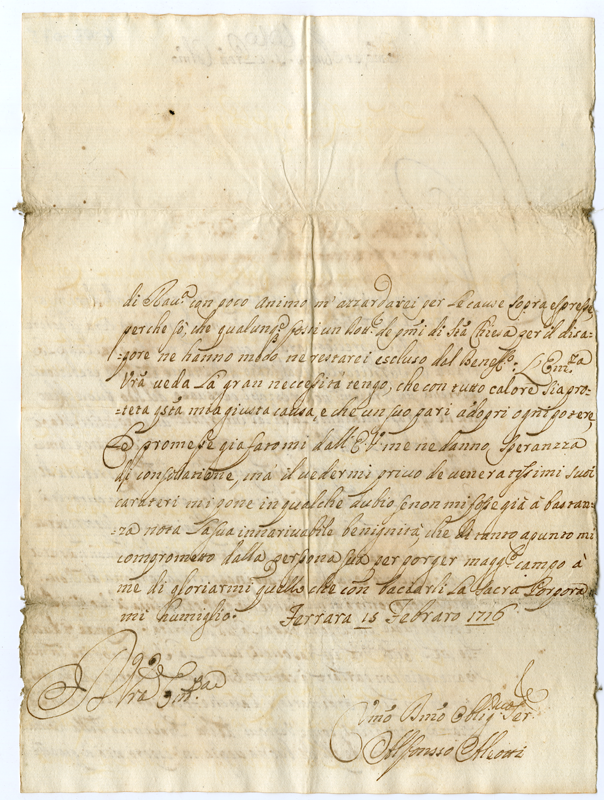 di Rav.ª con poco animo m'azzardarei per le cause sopra espresse
perche sò, che qualunq3 posti un di S.ta Chiesa per il disa-
:gore ne hanno modo ne restarei escluso dal Benef.o: L'Em.za
Vrā veda la gran necessità tengo, che con tutto calore sia pro-
teta q.sta mia giusta causa, e che un suo pari adopri ogni potere,
Le promesse già fatomi dall'E.V. me ne danno speranzza
di consolatione, mà il vedermi privo de veneratissimi suoi
carateri mi pone in qualche dubio, se non mi fosse già à bastan-
:za nota la sua innarivabile benignità, che di tanto apunto mi
comprometto dalla persona sua per porger magg.r campo à
me di gloriarmi quello che con baciarli la Sacra Porpora
mi humiglio. Ferrara 15 Febraro 1716
Vrā Em.za
Umo Dmo Obl Ser.
Alfonsso